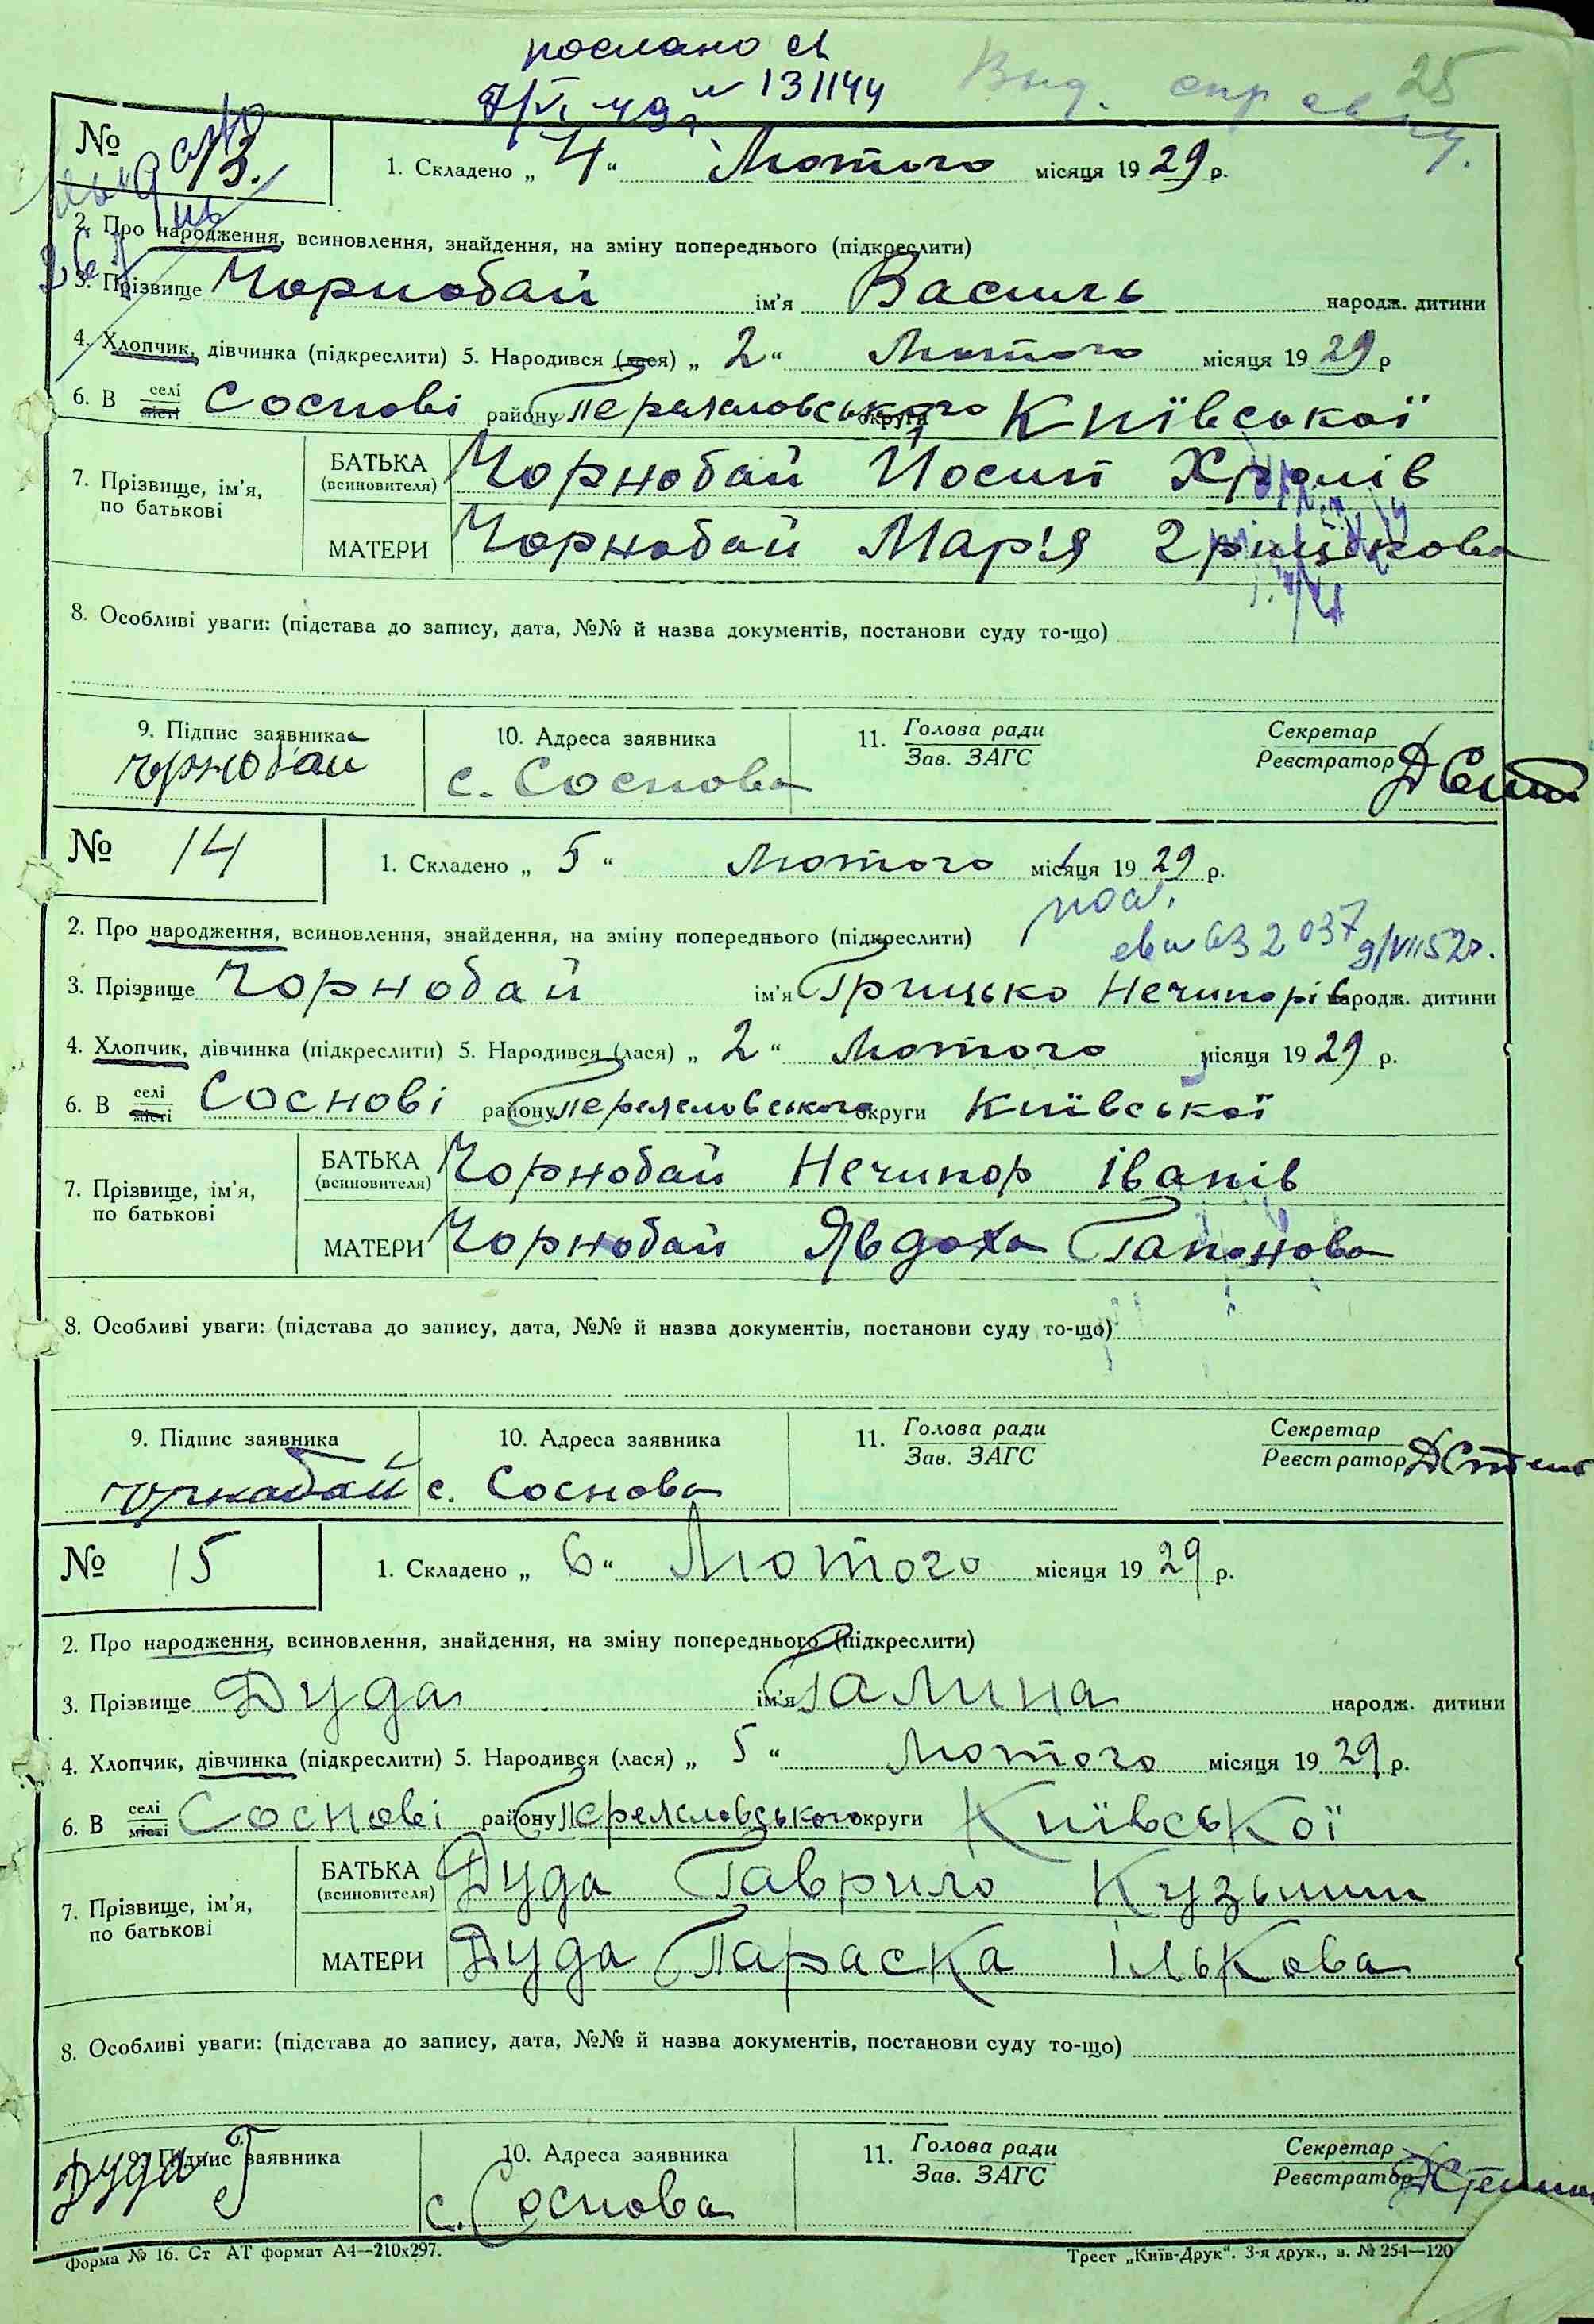 послано
№ 131144
Вид.
25
№ 13.
1. Складено „ 4 “ Лютого місяця 1929 р.
2. Про народження, всиновлення, знайдення, на зміну попереднього (підкреслити)
3. Прізвище Чорнобай ім’я Василь народж. дитини
4. Хлопчик, дівчинка (підкреслити) 5. Народився (лася) „ 2 “ Лютого місяця 1929 р
6. В селі місті Соснові району Переяславського округи Київської
7. Прізвище, ім’я, по батькові
БАТЬКА (всиновителя) Чорнобай Йосип
МАТЕРИ Чорнобай Мар'я Грицькова
8. Особливі уваги: (підстава до запису, дата, №№ й назва документів, постанови суду то-що)
9. Підпис заявника
10. Адреса заявника
11. Голова ради Зав. ЗАГС
Секретар Реєстратор
Чорнобай
с. Соснова
№ 14
1. Складено „ 5 “ Лютого місяця 1929 р.
2. Про народження, всиновлення, знайдення, на зміну попереднього (підкреслити)
3. Прізвище Чорнобай ім’я Грицько Нечипорів народж. дитини
4. Хлопчик, дівчинка (підкреслити) 5. Народився (лася) „ 2 “ Лютого місяця 1929 р.
6. В селі місті Соснові району Переяславського округи Київської
7. Прізвище, ім’я, по батькові
БАТЬКА (всиновителя) Чорнобай Нечипор Іванів
МАТЕРИ Чорнобай Явдоха Гапонова
8. Особливі уваги: (підстава до запису, дата, №№ й назва документів, постанови суду то-що)
9. Підпис заявника
10. Адреса заявника
11. Голова ради Зав. ЗАГС
Секретар Реєстратор
Чорнобай
с. Соснова
№ 15
1. Складено „ 6 “ Лютого місяця 1929 р.
2. Про народження, всиновлення, знайдення, на зміну попереднього (підкреслити)
3. Прізвище Дуда ім’я Галина народж. дитини
4. Хлопчик, дівчинка (підкреслити) 5. Народився (лася) „ 5 “ Лютого місяця 1929 р.
6. В селі місті Соснові району Переяславського округи Київської
7. Прізвище, ім’я, по батькові
БАТЬКА (всиновителя) Дуда Гаврило Кузьмин
МАТЕРИ Дуда Параска Ількова
8. Особливі уваги: (підстава до запису, дата, №№ й назва документів, постанови суду то-що)
9. Підпис заявника
10. Адреса заявника
11. Голова ради Зав. ЗАГС
Секретар Реєстратор
Дуда Г
с. Соснова
Форма № 16. Ст АТ формат А4—210х297.
Трест „Київ-Друк“. 3-я друк., з. № 254—120